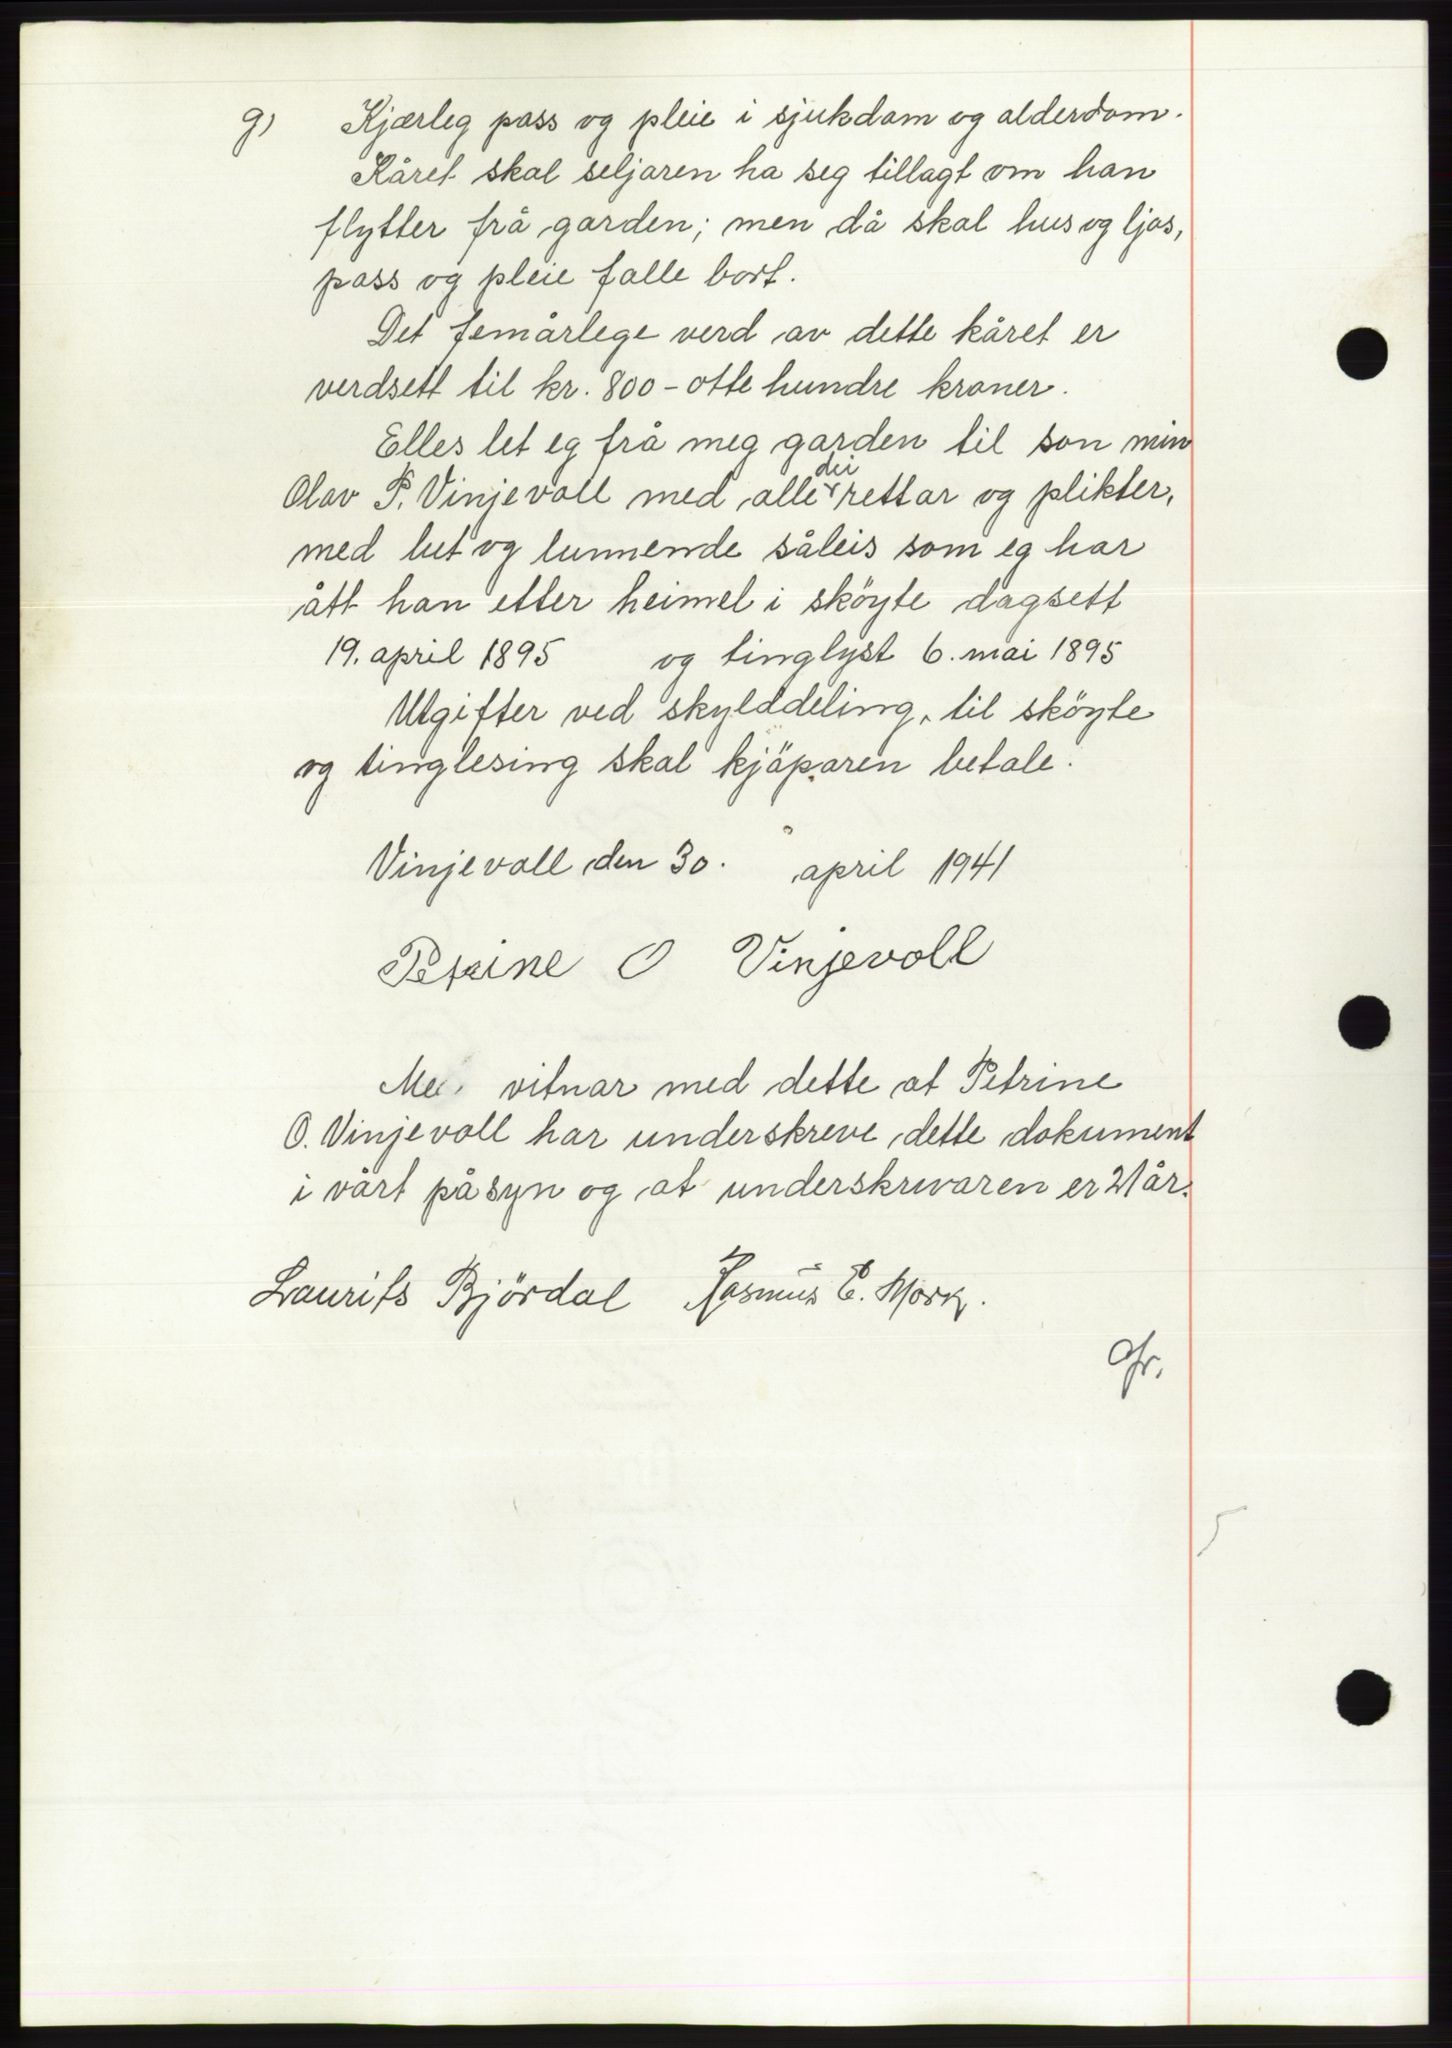 g) Kjærleg pass og pleie i sjukdom og alderdom.
Kåret skal seljaren ha seg tillagt om han
flytter frå garden; men då skal hus og ljos,
pass og pleie falle bort.
Det femårlege verd av dette kåret er
verdsett til kr. 800 - otte hundre kroner.
Elles let eg frå meg garden til son min
dei
Olav P. Vinjevoll med alle rettar og plikter,
med lut og lunnende såleis som eg har
ått han etter heimel i sköyte dagsett
19. april 1895 og tinglyst 6. mai 1895
Utgifter ved skylddeling, til sköyte
og tinglesing skal kjöparen betale.
Vinjevoll den 30. april 1941
Petrine O Vinjevoll
Me vitnar med dette at Petrine
O. Vinjevoll har underskreve dette dokument
i vårt påsyn og at underskrivaren er 21 år.
Laurits Björdal Rasmus E. Mork.